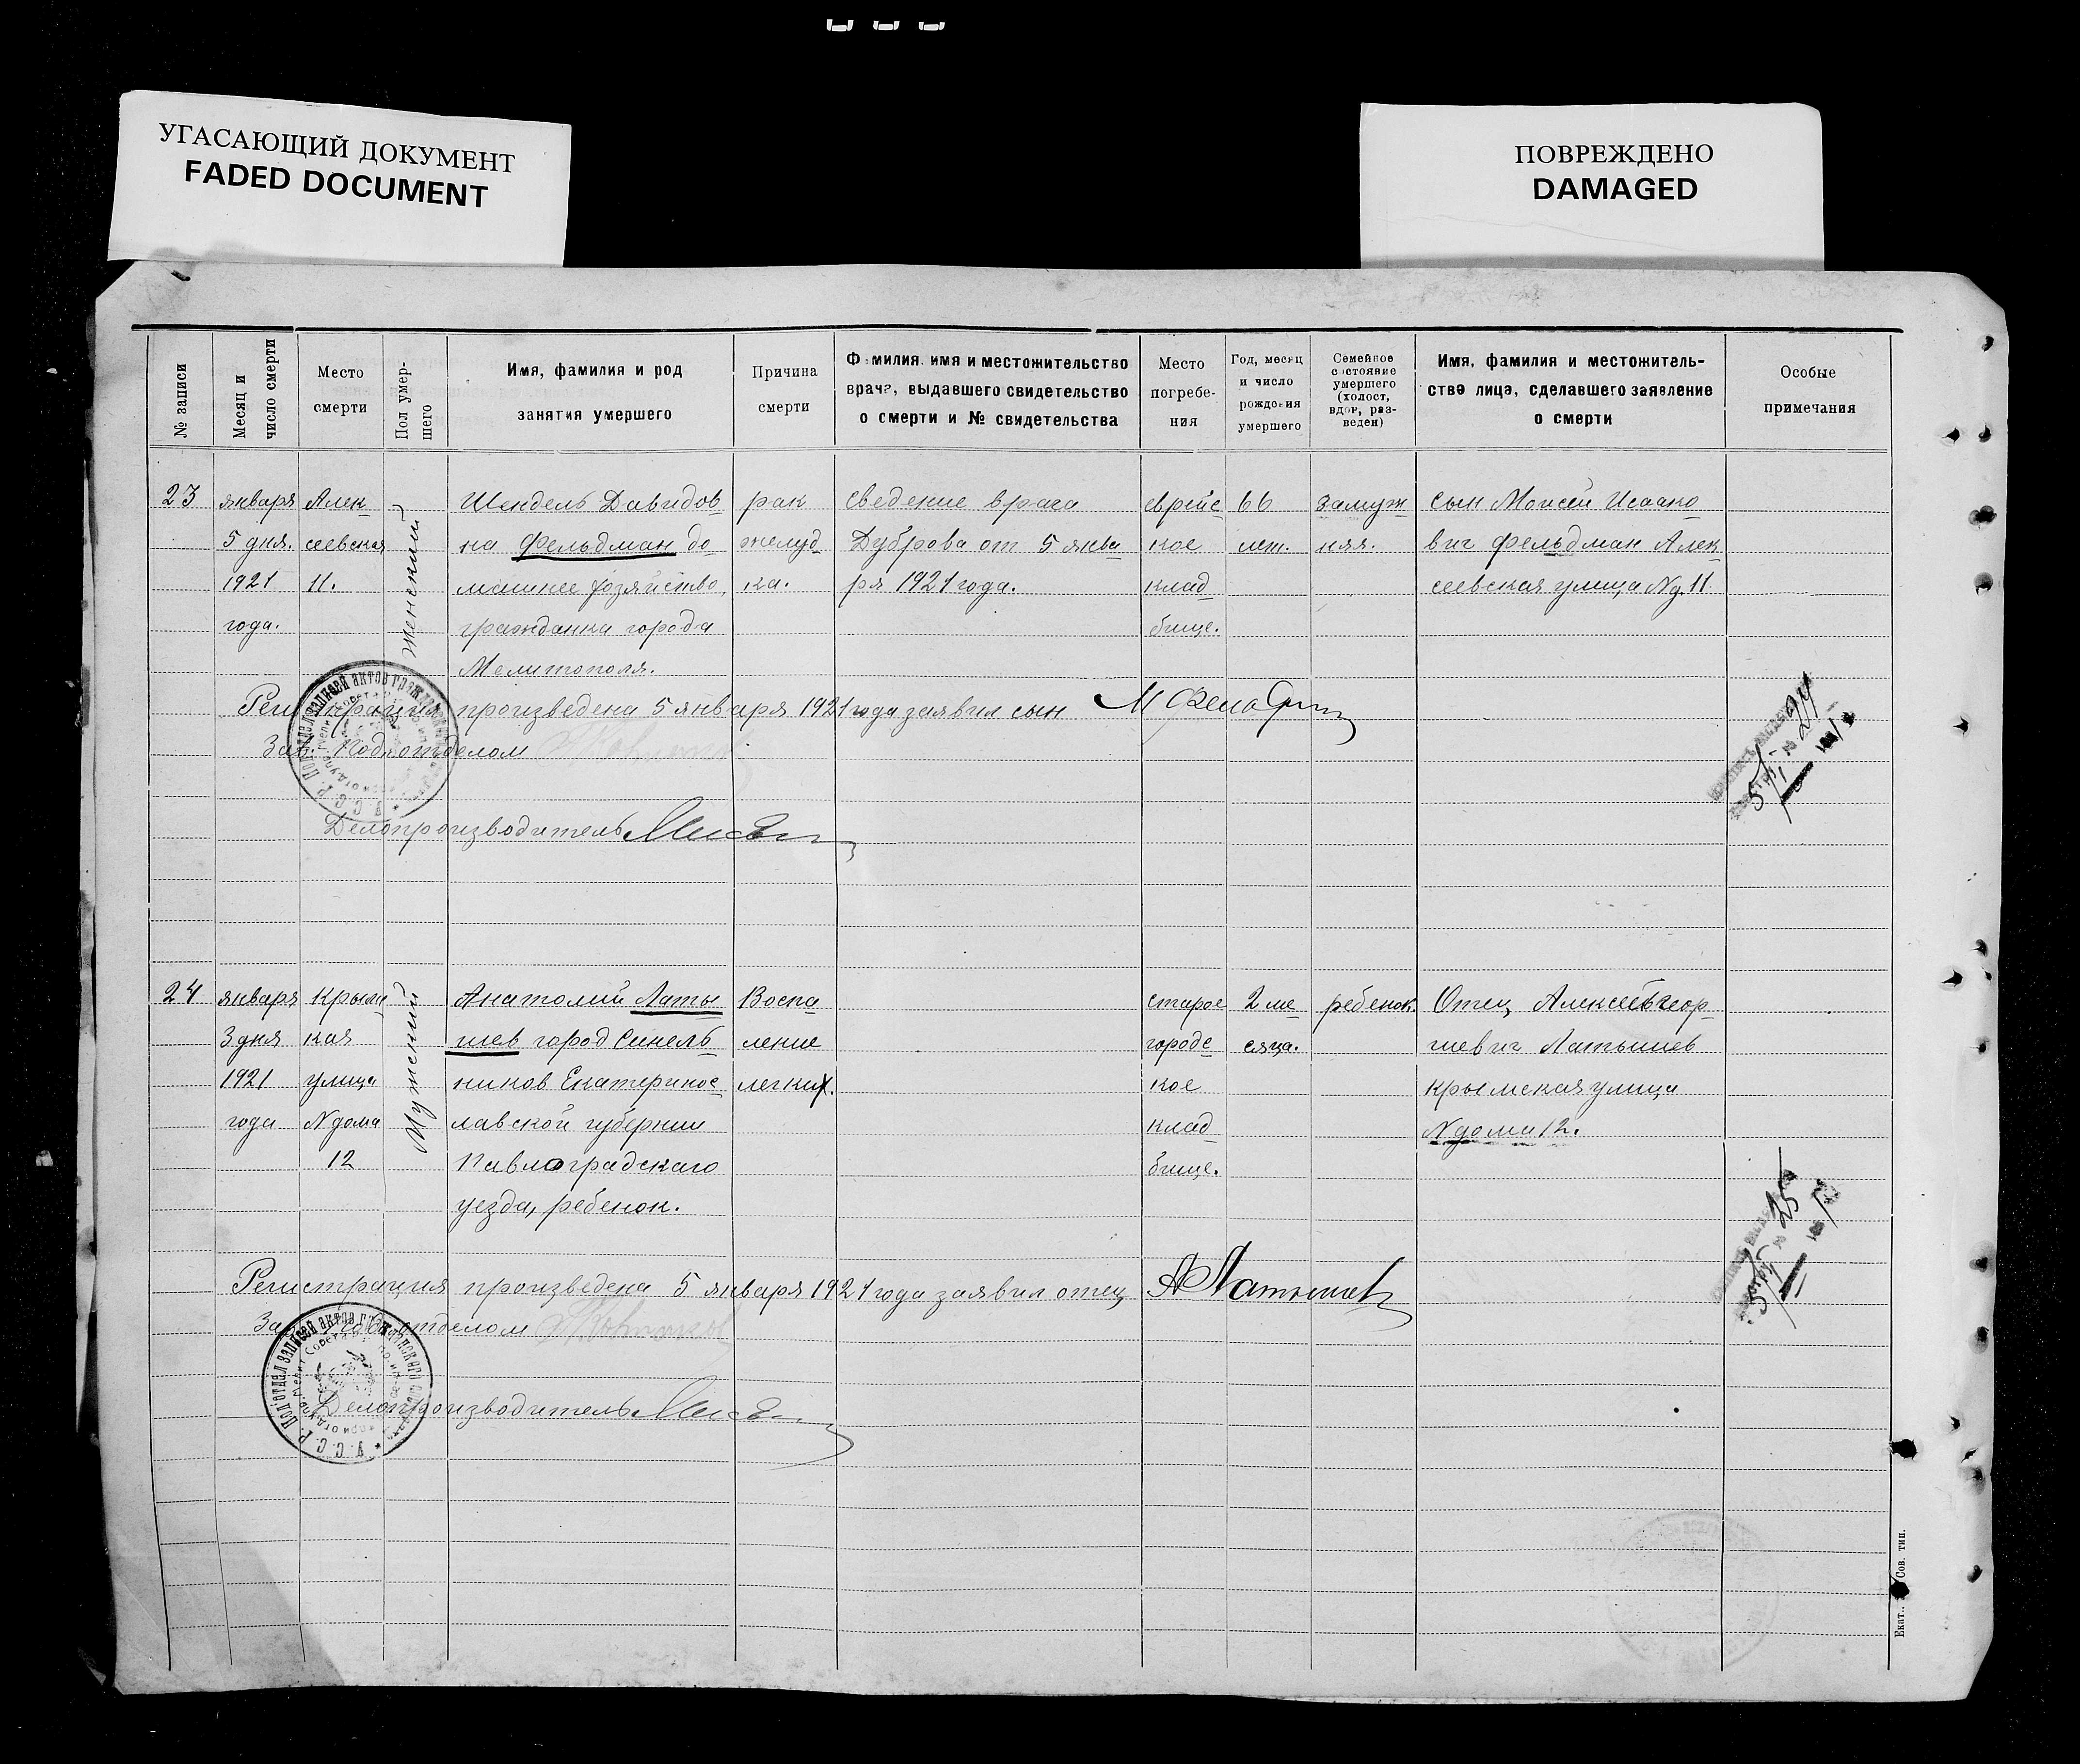 УГАСАЮЩИЙ ДОКУМЕНТ
FADED DOCUMENT
ПОВРЕЖДЕНО
DAMAGED
№ записи
Месяц и
число смерти
Место
смерти
Пол умер-
шего
Имя, фамилия и род
занятия умершего
Причина
смерти
Фамилия, имя и местожительство
врача, выдавшего свидетельство
о смерти и № свидетельства
Место
погребе-
ния
Год, месяц
и число
рождения
умершего
Семейное
состояние
умершего
(холост,
вдов, раз-
веден)
Имя, фамилия и местожитель-
ство лица, сделавшего заявление
о смерти
Особые
примечания
23
января
5 дня.
1921
года.
Алек
сеевская
11.
Женский
Шендель Давидов
на Фельдман до
машнее хозяйство,
гражданка города
Мелитополя.
рак
желуд
ка.
сведение врача
Дуброва от 5 янва
ря 1921 года.
еврейс
кое
клад
бище.
66
лет.
замуж
няя.
сын Моисей Исаако
вич Фельдман Алек
сеевская улица №д. 11
Регистрация произведена 5 января 1921 года заявил сын
Зав. Подотделом
Делопроизводитель
24
января
3 дня
1921
года
Крымс
кая
улица
№ дома
12
Мужской
Анатолий Латы
шев город Синель
ников Екатеринос
лавской губернии
Павлоградскаго
уезда, ребенок.
Воспа
ление
легких.
старое
городс
кое
клад
бище.
2 ме
сяца.
ребенок.
Отец Алексей Геор
гиевич Латышев
Крымская улица
№ дома 12.
Регистрация произведена 5 января 1921 года заявил отец А Латышев
Зав. Подотделом
Делопроизводитель
Сов. тип.